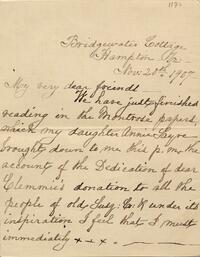 Bridgewater Cottage
Hampton Va
Nov. 20th, 1907
My very dear friends
We have just finished
reading in the Montrose papers,
which my daughter Annie
brought down to me this p.m. the
account of the Dedication of dear
Clemmie's donation to all the
people of old Susq. Co. & under its
inspiration I feel that I must
immediately x - x - x. —